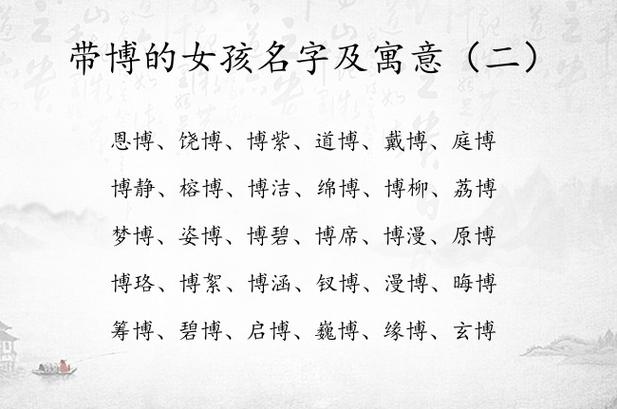 带博的女孩名字及寓意（二）
恩博、饶博、博紫、道博、戴博、庭博
博静、榕博、博洁、绵博、博柳、荔博
梦博、姿博、博碧、博席、博漫、原博
博珞、博絮、博涵、钗博、漫博、晦博
筹博、碧博、启博、巍博、缘博、玄博